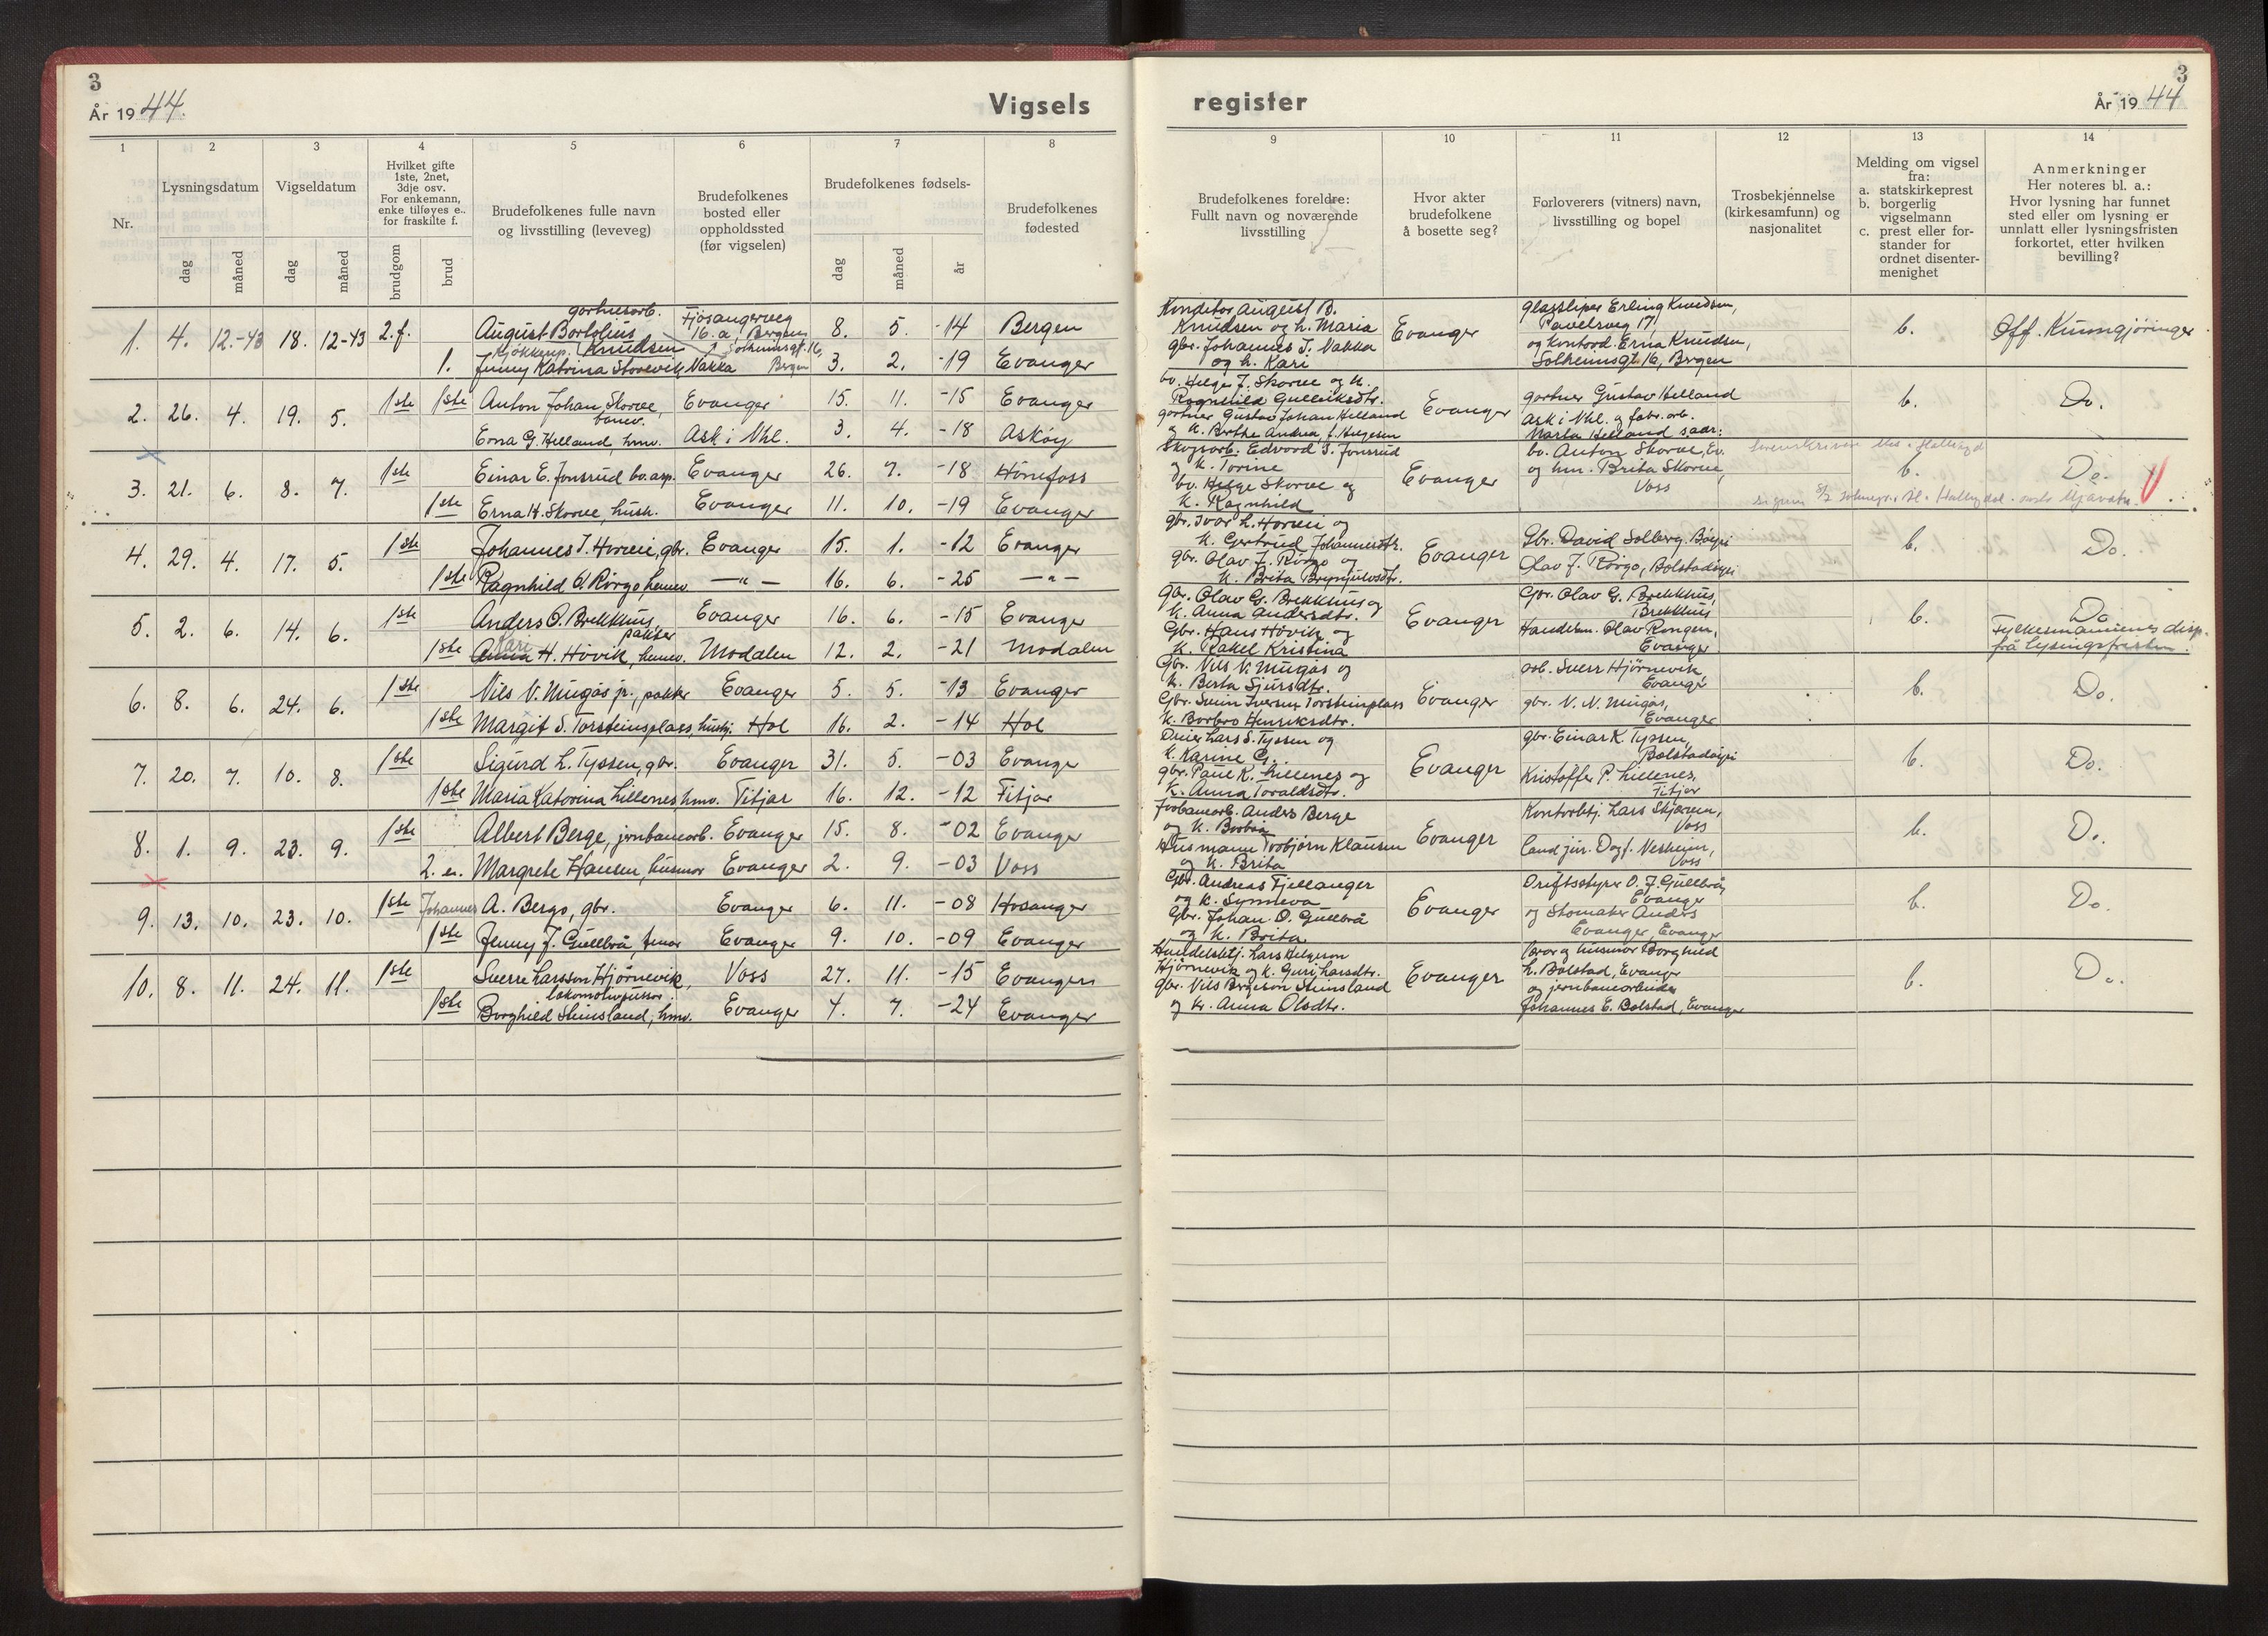 3
År 1944.
Vigsels
1 2 3 4 5 6 7 8
Nr.
Lysningsdatum
dag
måned
Vigseldatum
dag
måned
Hvilket gifte
1ste, 2net,
3dje osv.
For enkemann,
enke tilføyes e..
for fraskilte f.
brudgom
brud
Brudefolkenes fulle navn
og livsstilling (leveveg)
Brudefolkenes
bosted eller
oppholdssted
(før vigselen)
Brudefolkenes fødsels-
dag
måned
år
Brudefolkenes
fødested
1. 4. 12.-43 18. 12-43 2.f. August Bortolius Knudsen Fjøsangerveg 16.a, Bergen 8. 5. -14 Bergen
1. Jenny Katrina Storevik Vakka Solheimsgt. 16, Bergen 3. 2. -19 Evanger
2. 26. 4. 19. 5. 1ste 1ste Anton Johan Skorve, Evanger 15. 11. -15 Evanger
Erna G. Helland, hmv. Ask i Nhl. 3. 4. -18 Askøy
3. 21. 6. 8. 7. 1ste Einar E. Jonsrud bv. asp. Evanger 26. 7. -18 Hønefoss
1ste Erna H. Skorve, hush. Evanger 11. 10. -19 Evanger
4. 29. 4. 17. 5. 1ste Johannes I. Horvei, gbr. Evanger 15. 1. -12 Evanger
1ste Ragnhild O. Rörgo, hmv. —"— 16. 6. -25 —"—
5. 2. 6. 14. 6. 1ste Anders O. Brekkhus, pakker Evanger 16. 6. -15 Evanger
1ste Kari H. Hövik, hmv. Modalen 12. 2. -21 Modalen
6. 8. 6. 24. 6. 1ste Nils V. Mugås jr., pakker Evanger 5. 5. -13 Evanger
1ste Margit S. Torsteinsplass, hushj. Hol 16. 2. -14 Hol
7. 20. 7. 10. 8. 1ste Sigurd L. Tyssen, gbr. Evanger 31. 5. -03 Evanger
1ste Maria Katorina Lillenes hmv. Fitjar 16. 12. -12 Fitjar
8. 1. 9. 23. 9. 1ste Albert Berge, jernbanearb. Evanger 15. 8. -02 Evanger
2. e. Margrete Hansen, husmor Evanger 2. 9. -03 Voss
9. 13. 10. 23. 10. 1ste Johannes A. Bergo, gbr. Evanger 6. 11. -08 Hosanger
1ste Jenny J. Gullbrå, Evanger 9. 10. -09 Evanger
10. 8. 11. 24. 11. 1ste Sverre Larsson Hjørnevik, Voss 27. 11. -15 Evanger
1ste Borghild Stimsland, hmv. Evanger 4. 7. -24 Evanger
register
3
År 1944
9 10 11 12 13 14
Brudefolkenes foreldre:
Fullt navn og noværende
livsstilling
Hvor akter
brudefolkene
å bosette seg?
Forloverers (vitners) navn,
livsstilling og bopel
Trosbekjennelse
(kirkesamfunn) og
nasjonalitet
Melding om vigsel
fra:
a. statskirkeprest
b. borgerlig
vigselmann
c. prest eller for-
stander for
ordnet disenter-
menighet
Anmerkninger
Her noteres bl. a.:
Hvor lysning har funnet
sted eller om lysning er
unnlatt eller lysningsfristen
forkortet, etter hvilken
bevilling?
Konditor August B.
Knudsen og h. Maria
gbr. Johannes J. Vakka
og h. Kari
Evanger
glassliper Erling Knudsen,
Pavelsveg 17,
og kontord. Erna Knudsen,
Solheimsgt. 16, Bergen
b. Off. Kunngjøringer
bv. Helge J. Skorve og k.
Ragnhild Gulleiksdtr.
gartner Gustav Johan Helland
og k. Berthe Andrea, f. Helgesen
Evanger
gartner Gustav Helland
Ask i Nhl. og fabr. arb.
Marta Helland
b. Do.
Skogsarb. Edvard S. Jonsrud
og k. Torine
bv. Helge Skorve og
k. Ragnhild
Evanger
bv. Anton Skorve, Ev.
og hm. Brita Skorve,
Voss
b. Do.
gbr. Ivar L. Horvei og
k. Gertrud Johannesdtr.
gbr. Olav J. Rörgo og
k. Brita Brynjulvsdtr.
Evanger
Gbr. David Solberg,
Olav J. Rörgo, Bolstadöyri
b. Do.
Gbr. Olav G. Brekkhus og
k. Anna Andersdtr.
Gbr. Hans Hövik og
k. Rakel Kristina
Evanger
Gbr. Olav G. Brekkhus,
Brekkhus
Handelsm. Olav Rongen,
Evanger
b. Do
Fylkesmannens disp.
frå lysingsfristen.
Gbr. Nils V. Mugås og
k. Berta Sjursdtr.
Gbr. Svein Iversen Torsteinsplass
k. Borbro Henriksdtr.
Evanger
arb. Sverr Hjørnevik,
Evanger
gbr. V. N. Mugås,
Evanger
b. Do.
Lars S. Tyssen og
k. Karine G.
gbr. Paul K. Lillenes og
k. Anna Toraldsdtr.
Evanger
gbr. Einar K. Tyssen,
Bolstadöyri
Kristoffer P. Lillenes,
Fitjar
b. Do.
Jrnbanearb. Anders Berge
og k. Borbra
Husmann Torbjørn Klausen
og k. Brita
Evanger
Kontorbtj. Lars Skjerven,
Voss
Cand jur. Dagf. Vesheim,
Voss
b. Do.
Gbr. Andreas Fjellanger
og k. Synneva
Gbr. Johan O. Gullbrå
og k. Brita
Evanger
Driftsstyrer O. J. Gullbrå,
Evanger
og Skomaker Anders
Evanger, Evanger
b. Do.
Handelsbtj. Lars Helgeson
Hjørnevik og k. Guri Larsdtr.
gbr. Nils Brynson Stimsland
og k. Anna Olsdtr.
Evanger
husmor Borghild
L. Bolstad, Evanger
og jernbanearbeider
Johannes E. Bolstad, Evanger
b. Do.